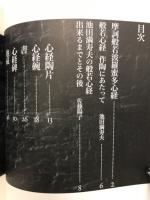 目次
摩訶般若波羅蜜多心経 2
般若心経 作陶にあたって 池田満寿夫 6
池田満寿夫の般若心経
出来るまでとその後 佐藤陽子 8
心経陶片 13
心経碗 18
書 26
心経碑 10